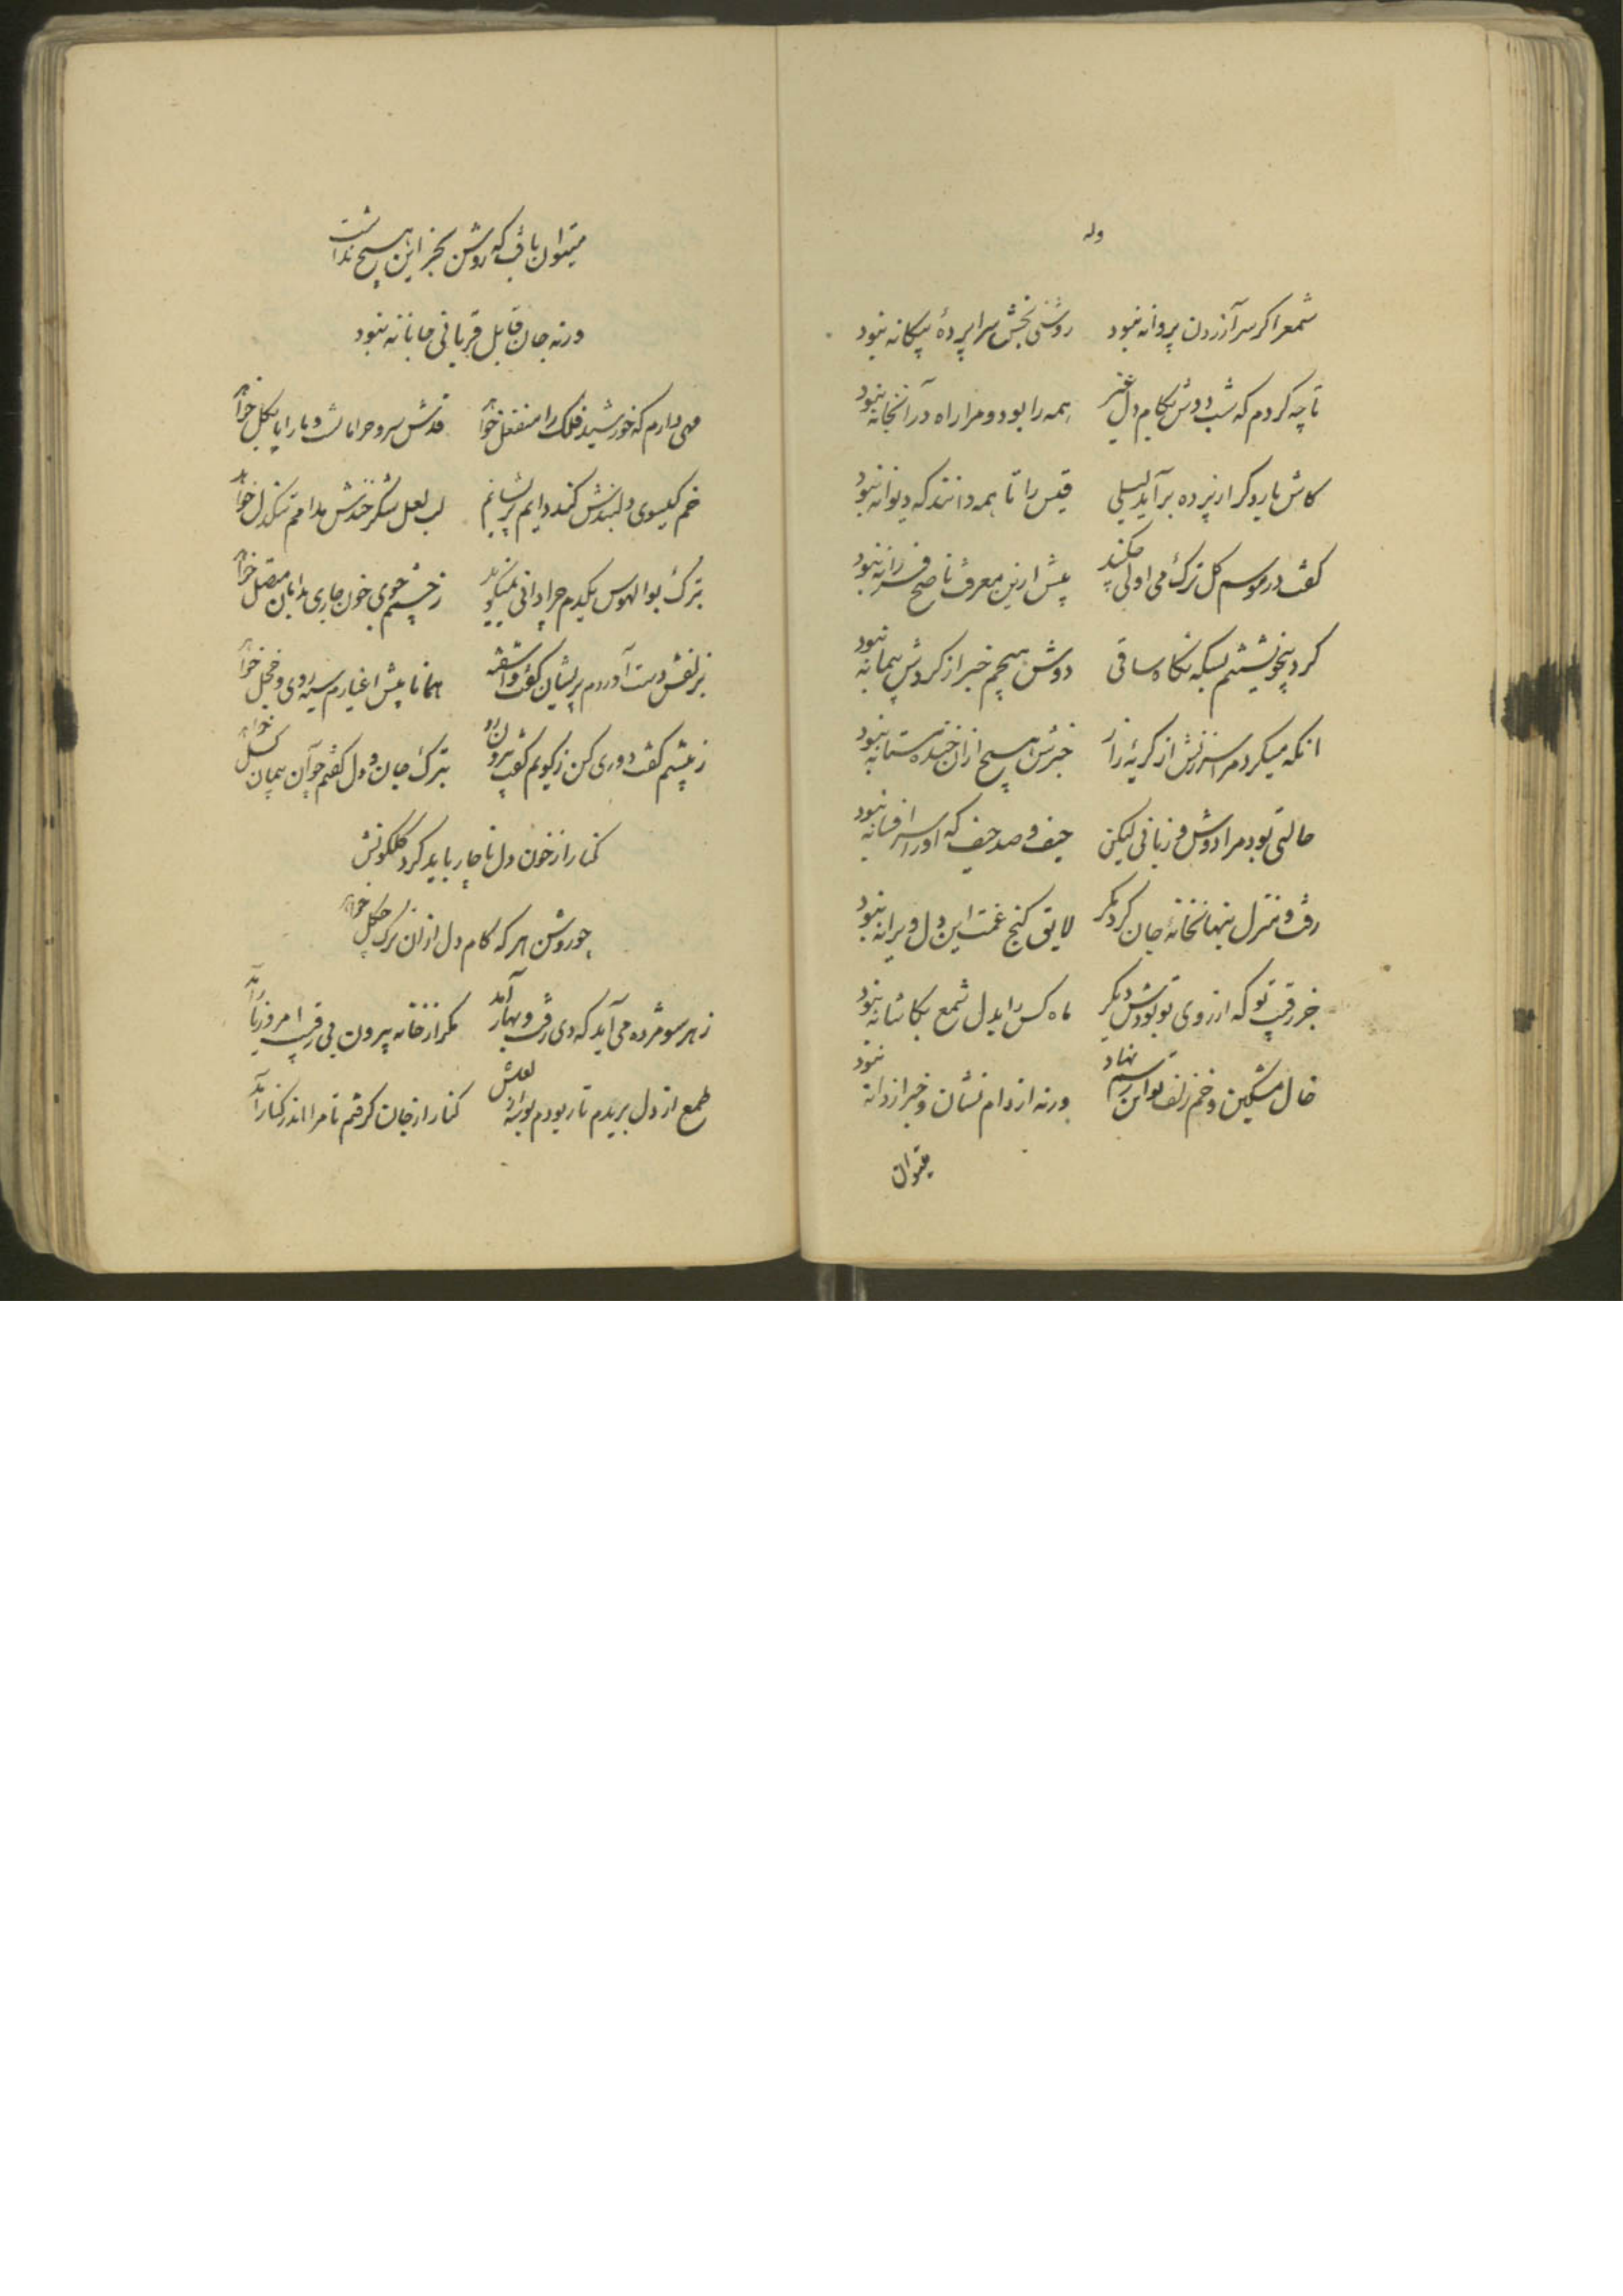 وله
شمع را گر سر آزردن پروانه نبود روشنی بخش سراپرده بیگانه نبود
تا چه کردم که شب دوش بکام دل غیر همه را بود و مرا راه در آنخانه نبود
کاش بار دگر از پرده برآید لیلی قیس را تا همه دانند که دیوانه نبود
گفت در موسم گل ترک می اولی پیش ازین معرفت ناصح فرزانه نبود
کرد بیخویشتنم بسکه نگاه ساقی دوش هیچم خبر از گردش پیمانه نبود
انکه میکرد مرا سرزنش از گریه زار خبرش هیچ ازان خنده مستانه نبود
حالتی بود مرا دوش و زبانی لیکن حیف و صد حیف که او را سر افسانه نبود
رفت و منزل بنهانخانه جان کرد مگر لایق گنج غمت این دل ویرانه نبود
جز رقیب تو که از روی تو بودش دیگر ماه کس را بدل شمع بکاشانه نبود
خال مشکین و خم زلف تو این رسم نهاد ورنه از دام نشان و خبر از دانه نبود
میتوان
میتوان یافت که روشن بجز این هیچ نداشت
ورنه جان قابل قربانی جانانه نبود
مهی دارم که خورشید فلک را منفعل خواهد قدش سرو خرامانست و ما را پا بگل خواهد
خم گیسوی دلبندش کند دایم پریشانم لب لعل شکرخندش مدامم تنگدل خواهد
بترک بوالهوس یکدم چرا دانی نمیگوید ز چشمم جوی خون جاری بدامان متصل خواهد
بزلفش دست آوردم پریشان گشت و آشفته همانا پیش اغیارم سیه روی و خجل خواهد
ز پیشم گفت دوری کن ز کویم گفت بیرون رو بترک جان و دل گفتم چو آن پیمان گسل خواهد
کنار از خون دل ناچار باید کرد گلگونش
چو روشن هر که کام دل ازان ترک چگل خواهد
ز هر سو مژده می آید که دی رفت و بهار آمد مگر از خانه بیرون بی رقیب امروز یار آمد
طمع از دل بریدم تا ربودم بوسه از لعلش کنار از جان گرفتم تا مرا اندر کنار آمد